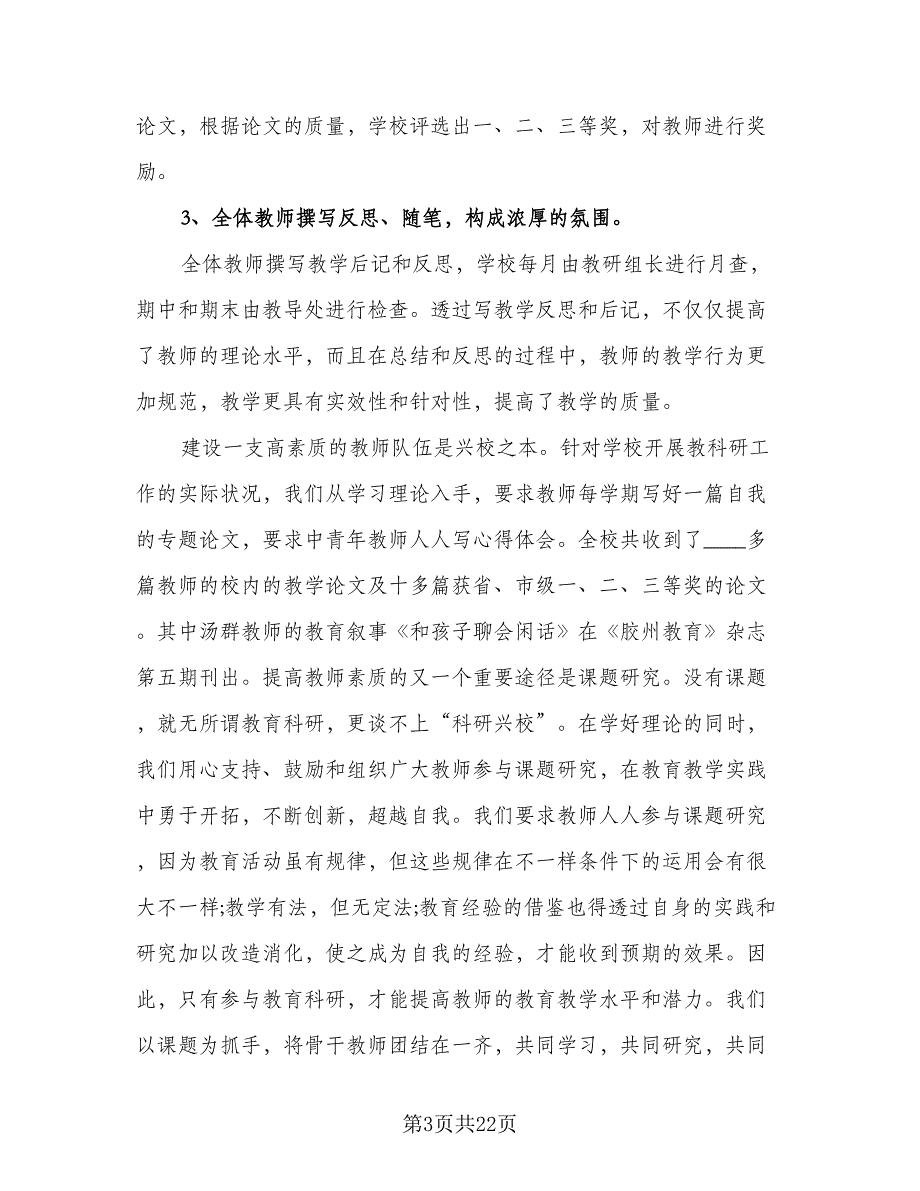 论文，根据论文的质量，学校评选出一、二、三等奖，对教师进行奖
励。
3、全体教师撰写反思、随笔，构成浓厚的氛围。
全体教师撰写教学后记和反思，学校每月由教研组长进行月查，
期中和期末由教导处进行检查。透过写教学反思和后记，不仅仅提高
了教师的理论水平，而且在总结和反思的过程中，教师的教学行为更
加规范，教学更具有实效性和针对性，提高了教学的质量。
建设一支高素质的教师队伍是兴校之本。针对学校开展教科研工
作的实际状况，我们从学习理论入手，要求教师每学期写好一篇自我
的专题论文，要求中青年教师人人写心得体会。全校共收到了____多
篇教师的校内的教学论文及十多篇获省、市级一、二、三等奖的论文
。其中汤群教师的教育叙事《和孩子聊会闲话》在《胶州教育》杂志
第五期刊出。提高教师素质的又一个重要途径是课题研究。没有课题
，就无所谓教育科研，更谈不上“科研兴校”。在学好理论的同时，
我们用心支持、鼓励和组织广大教师参与课题研究，在教育教学实践
中勇于开拓，不断创新，超越自我。我们要求教师人人参与课题研究
，因为教育活动虽有规律，但这些规律在不一样条件下的运用会有很
大不一样;教学有法，但无定法;教育经验的借鉴也得透过自身的实践和
研究加以改造消化，使之成为自我的经验，才能收到预期的效果。因
此，只有参与教育科研，才能提高教师的教育教学水平和潜力。我们
以课题为抓手，将骨干教师团结在一齐，共同学习，共同研究，共同
第3页共22页